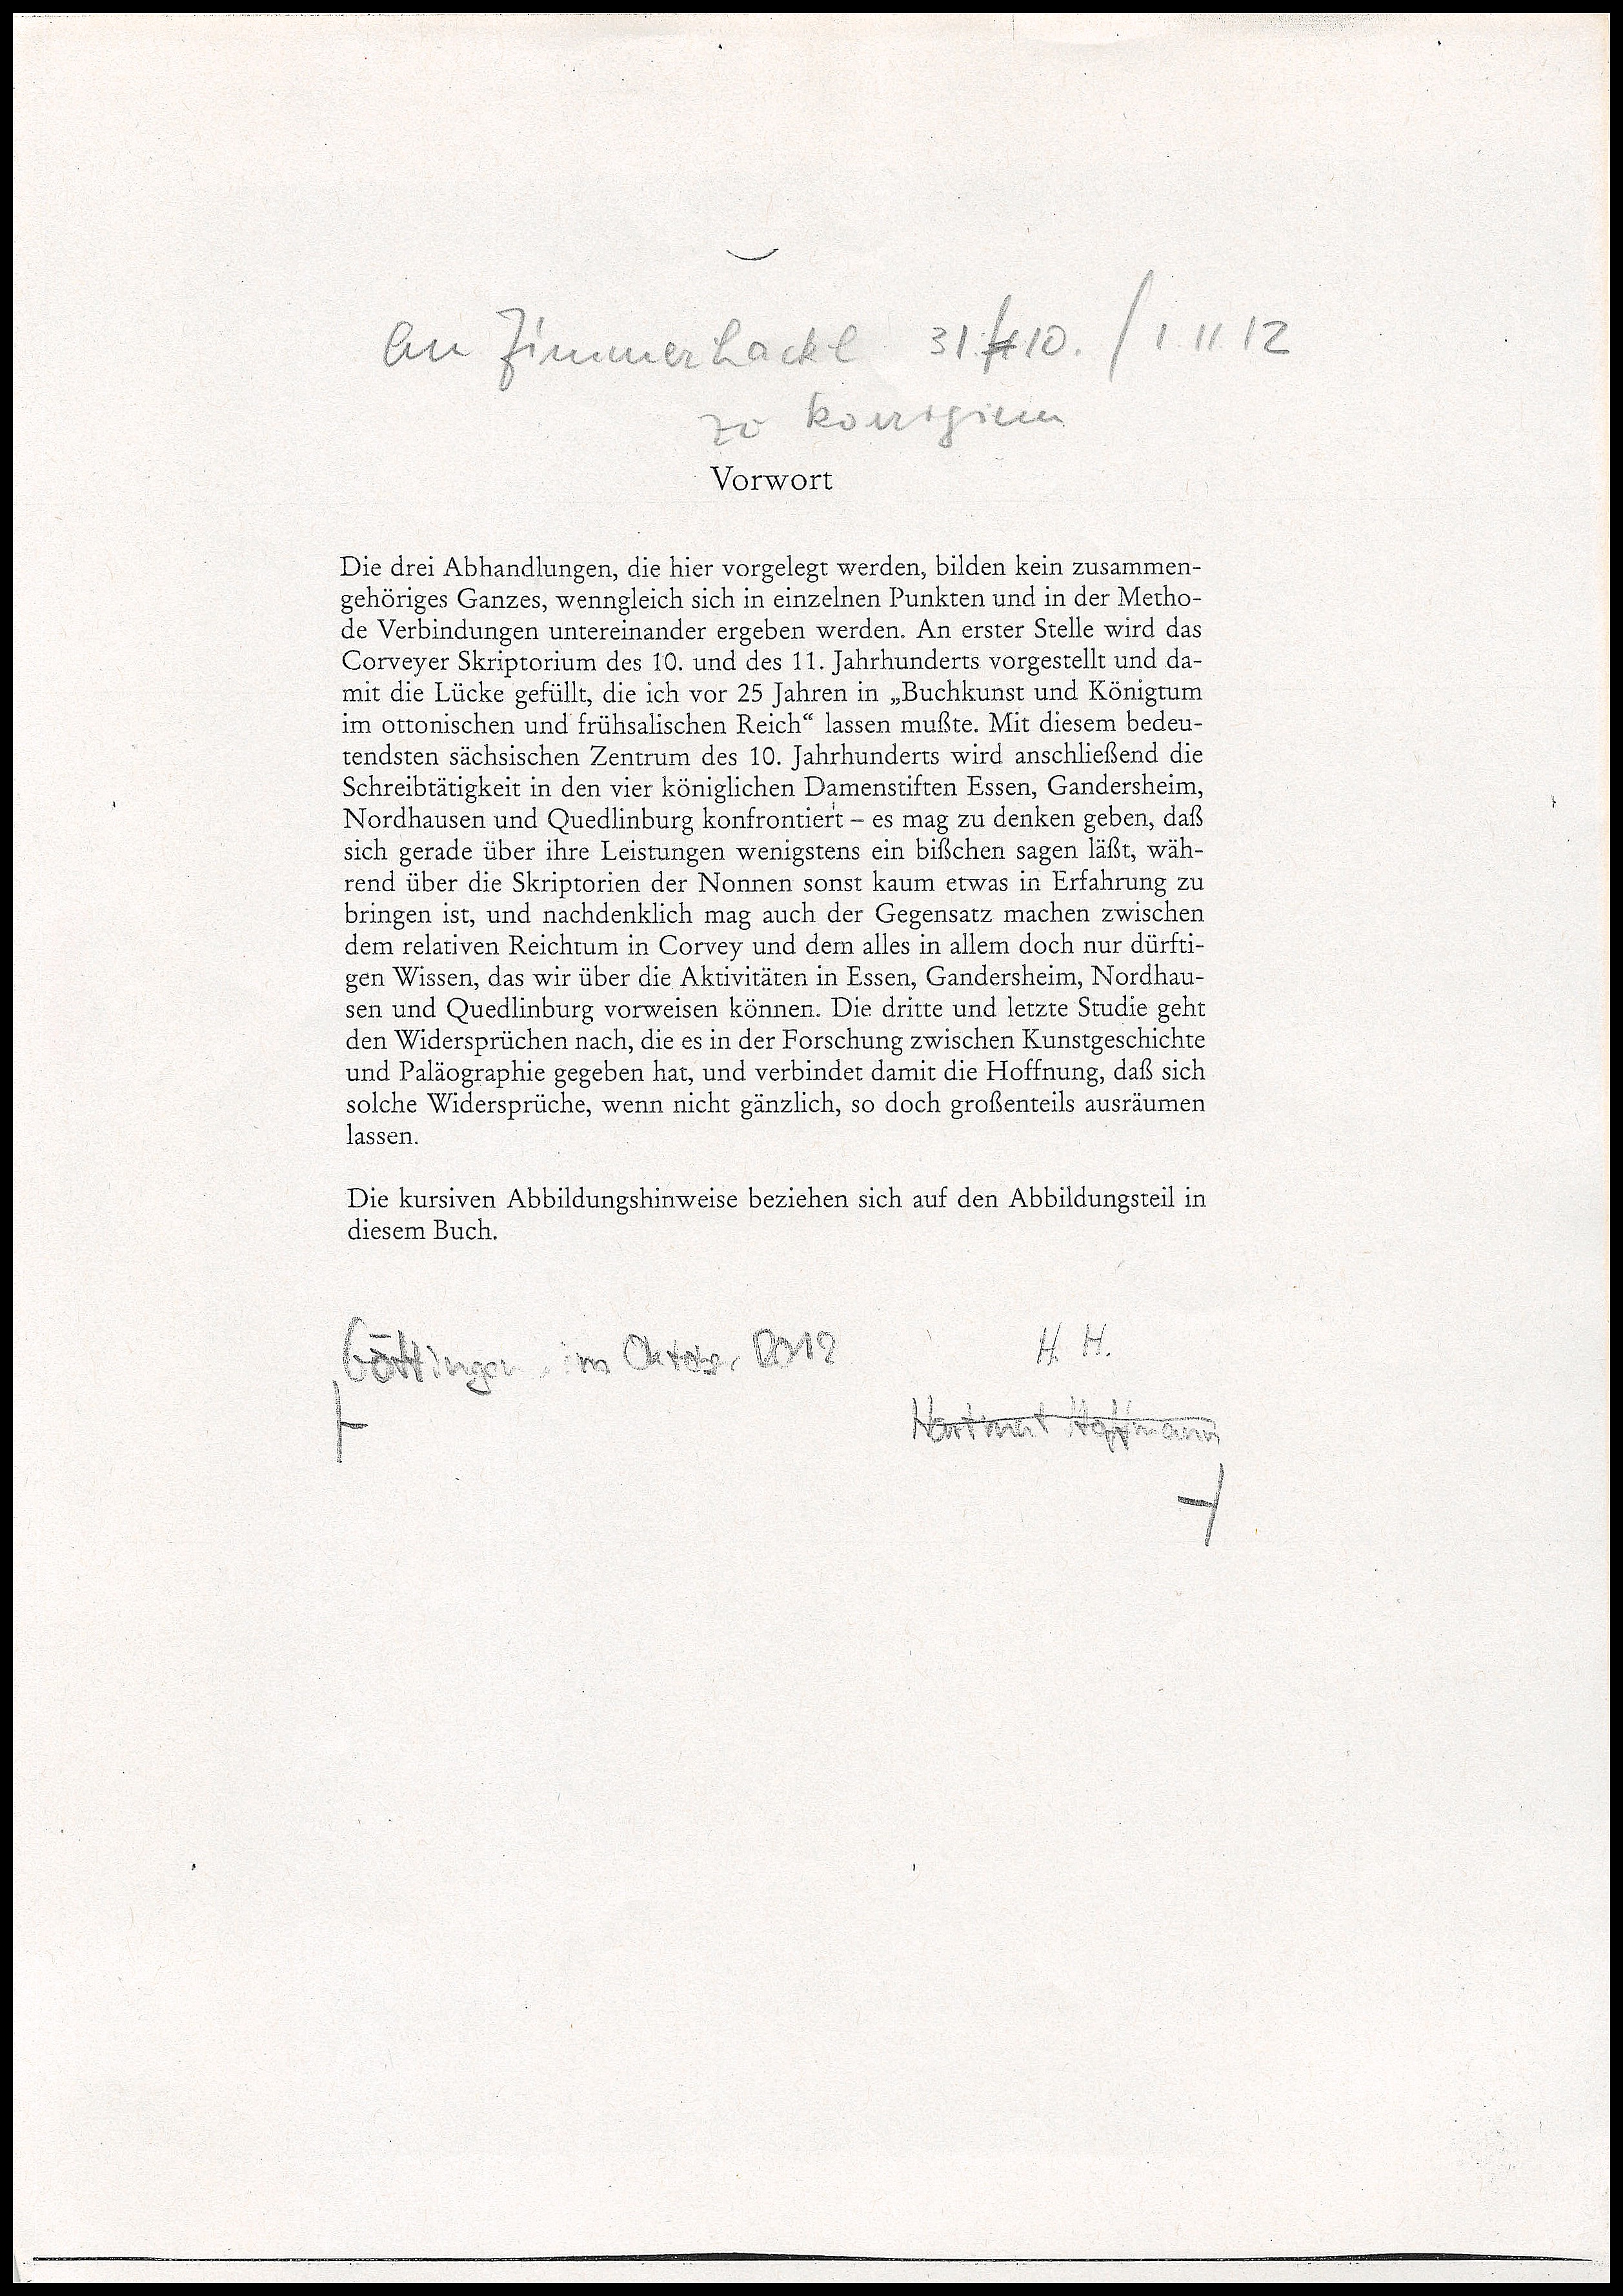 An Zimmerhackl 31.10. / 1.11.12
zu korrigieren
Vorwort
Die drei Abhandlungen, die hier vorgelegt werden, bilden kein zusammen-
gehöriges Ganzes, wenngleich sich in einzelnen Punkten und in der Metho-
de Verbindungen untereinander ergeben werden. An erster Stelle wird das
Corveyer Skriptorium des 10. und des 11. Jahrhunderts vorgestellt und da-
mit die Lücke gefüllt, die ich vor 25 Jahren in „Buchkunst und Königtum
im ottonischen und frühsalischen Reich“ lassen mußte. Mit diesem bedeu-
tendsten sächsischen Zentrum des 10. Jahrhunderts wird anschließend die
Schreibtätigkeit in den vier königlichen Damenstiften Essen, Gandersheim,
Nordhausen und Quedlinburg konfrontiert – es mag zu denken geben, daß
sich gerade über ihre Leistungen wenigstens ein bißchen sagen läßt, wäh-
rend über die Skriptorien der Nonnen sonst kaum etwas in Erfahrung zu
bringen ist, und nachdenklich mag auch der Gegensatz machen zwischen
dem relativen Reichtum in Corvey und dem alles in allem doch nur dürfti-
gen Wissen, das wir über die Aktivitäten in Essen, Gandersheim, Nordhau-
sen und Quedlinburg vorweisen können. Die dritte und letzte Studie geht
den Widersprüchen nach, die es in der Forschung zwischen Kunstgeschichte
und Paläographie gegeben hat, und verbindet damit die Hoffnung, daß sich
solche Widersprüche, wenn nicht gänzlich, so doch großenteils ausräumen
lassen.
Die kursiven Abbildungshinweise beziehen sich auf den Abbildungsteil in
diesem Buch.
Göttingen, im Oktober 2012 H. H.
Hartmut Hoffmann